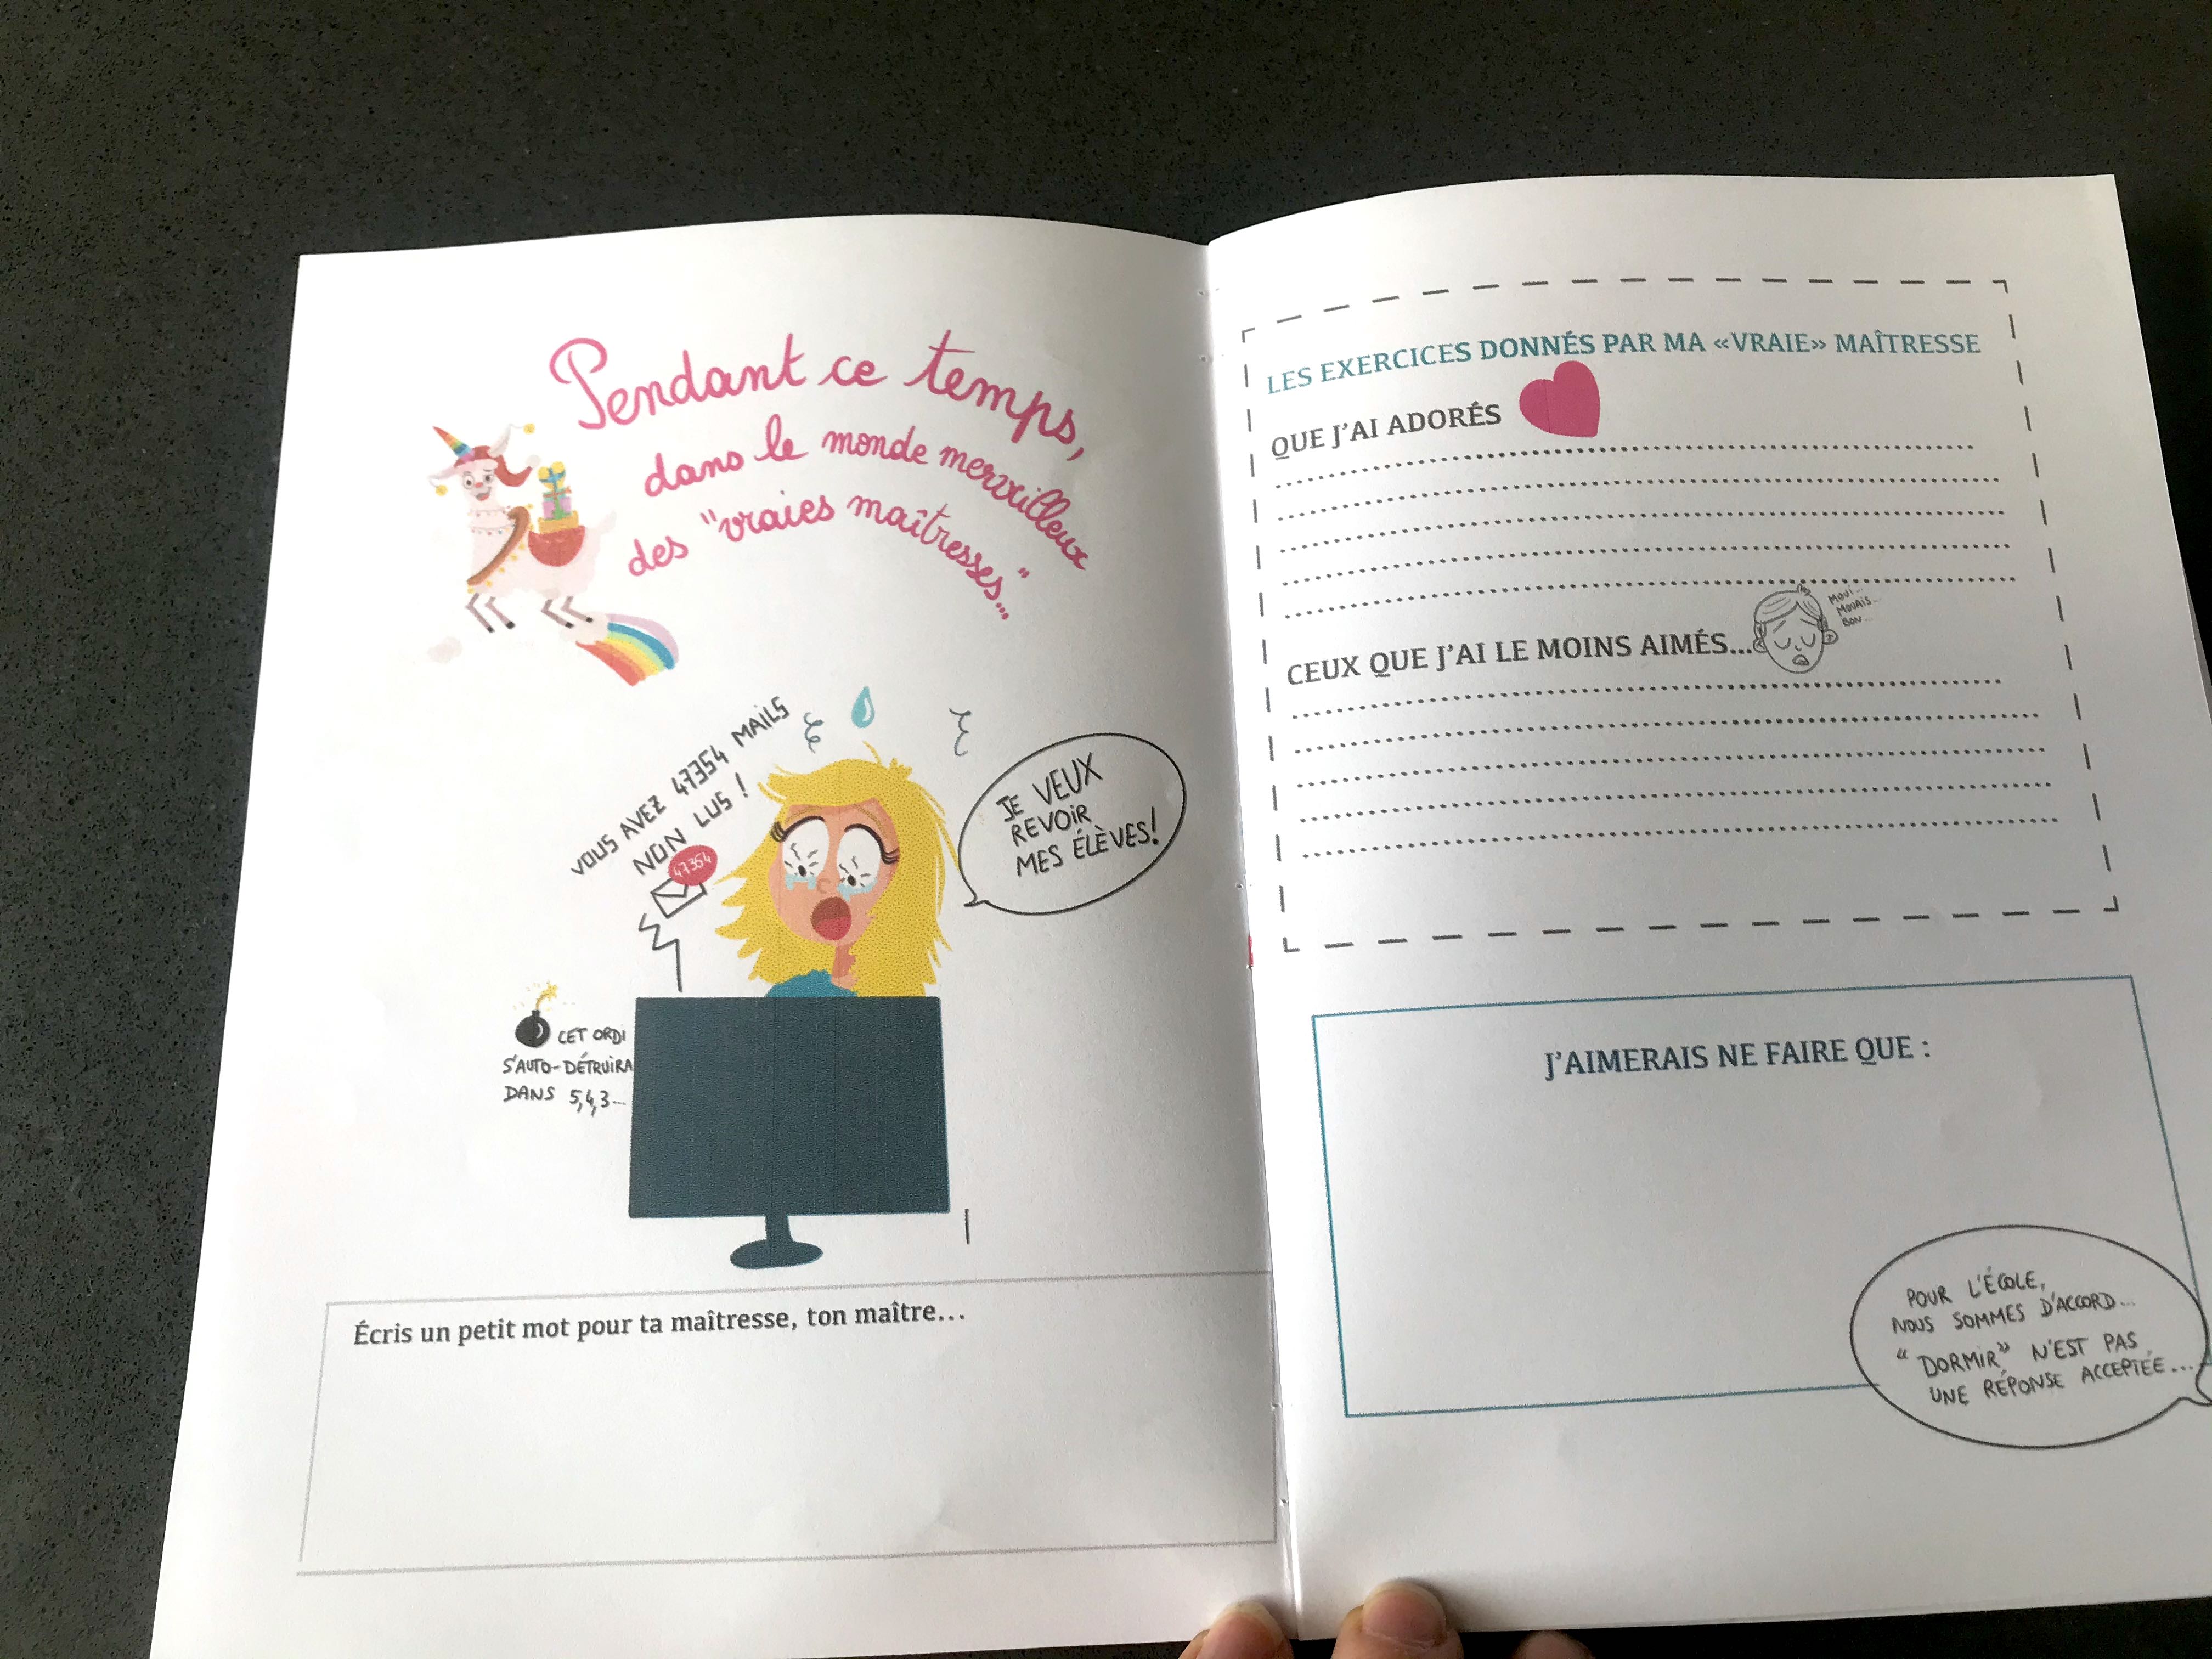 Pendant ce temps,
dans le monde merveilleux
des "vraies maîtresses..."
VOUS AVEZ 47354 MAILS
NON LUS !
47354
JE VEUX
REVOIR
MES ÉLÈVES!
CET ORDI
S'AUTO-DÉTRUIRA
DANS 5,4,3...
Écris un petit mot pour ta maîtresse, ton maître...
LES EXERCICES DONNÉS PAR MA «VRAIE» MAÎTRESSE
QUE J'AI ADORÉS
CEUX QUE J'AI LE MOINS AIMÉS...
MOUI...
MOUAIS...
BON...
J'AIMERAIS NE FAIRE QUE :
POUR L'ÉCOLE,
NOUS SOMMES D'ACCORD...
"DORMIR" N'EST PAS
UNE RÉPONSE ACCEPTÉE...